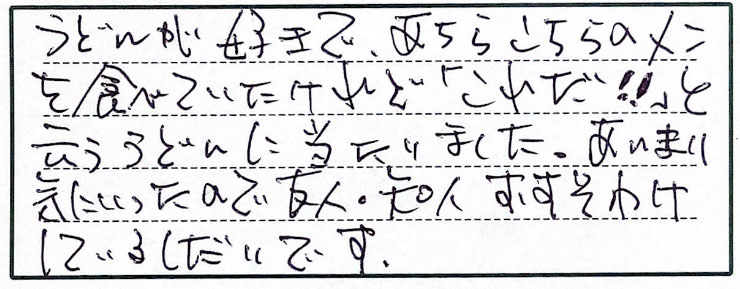 うどんが好きで、あちらこちらのメン
を食べていたけれど「これだ!!」と
云ううどんに当たりました。あんまり
気にいったので友人・知人すそわけ
しているしだいです。